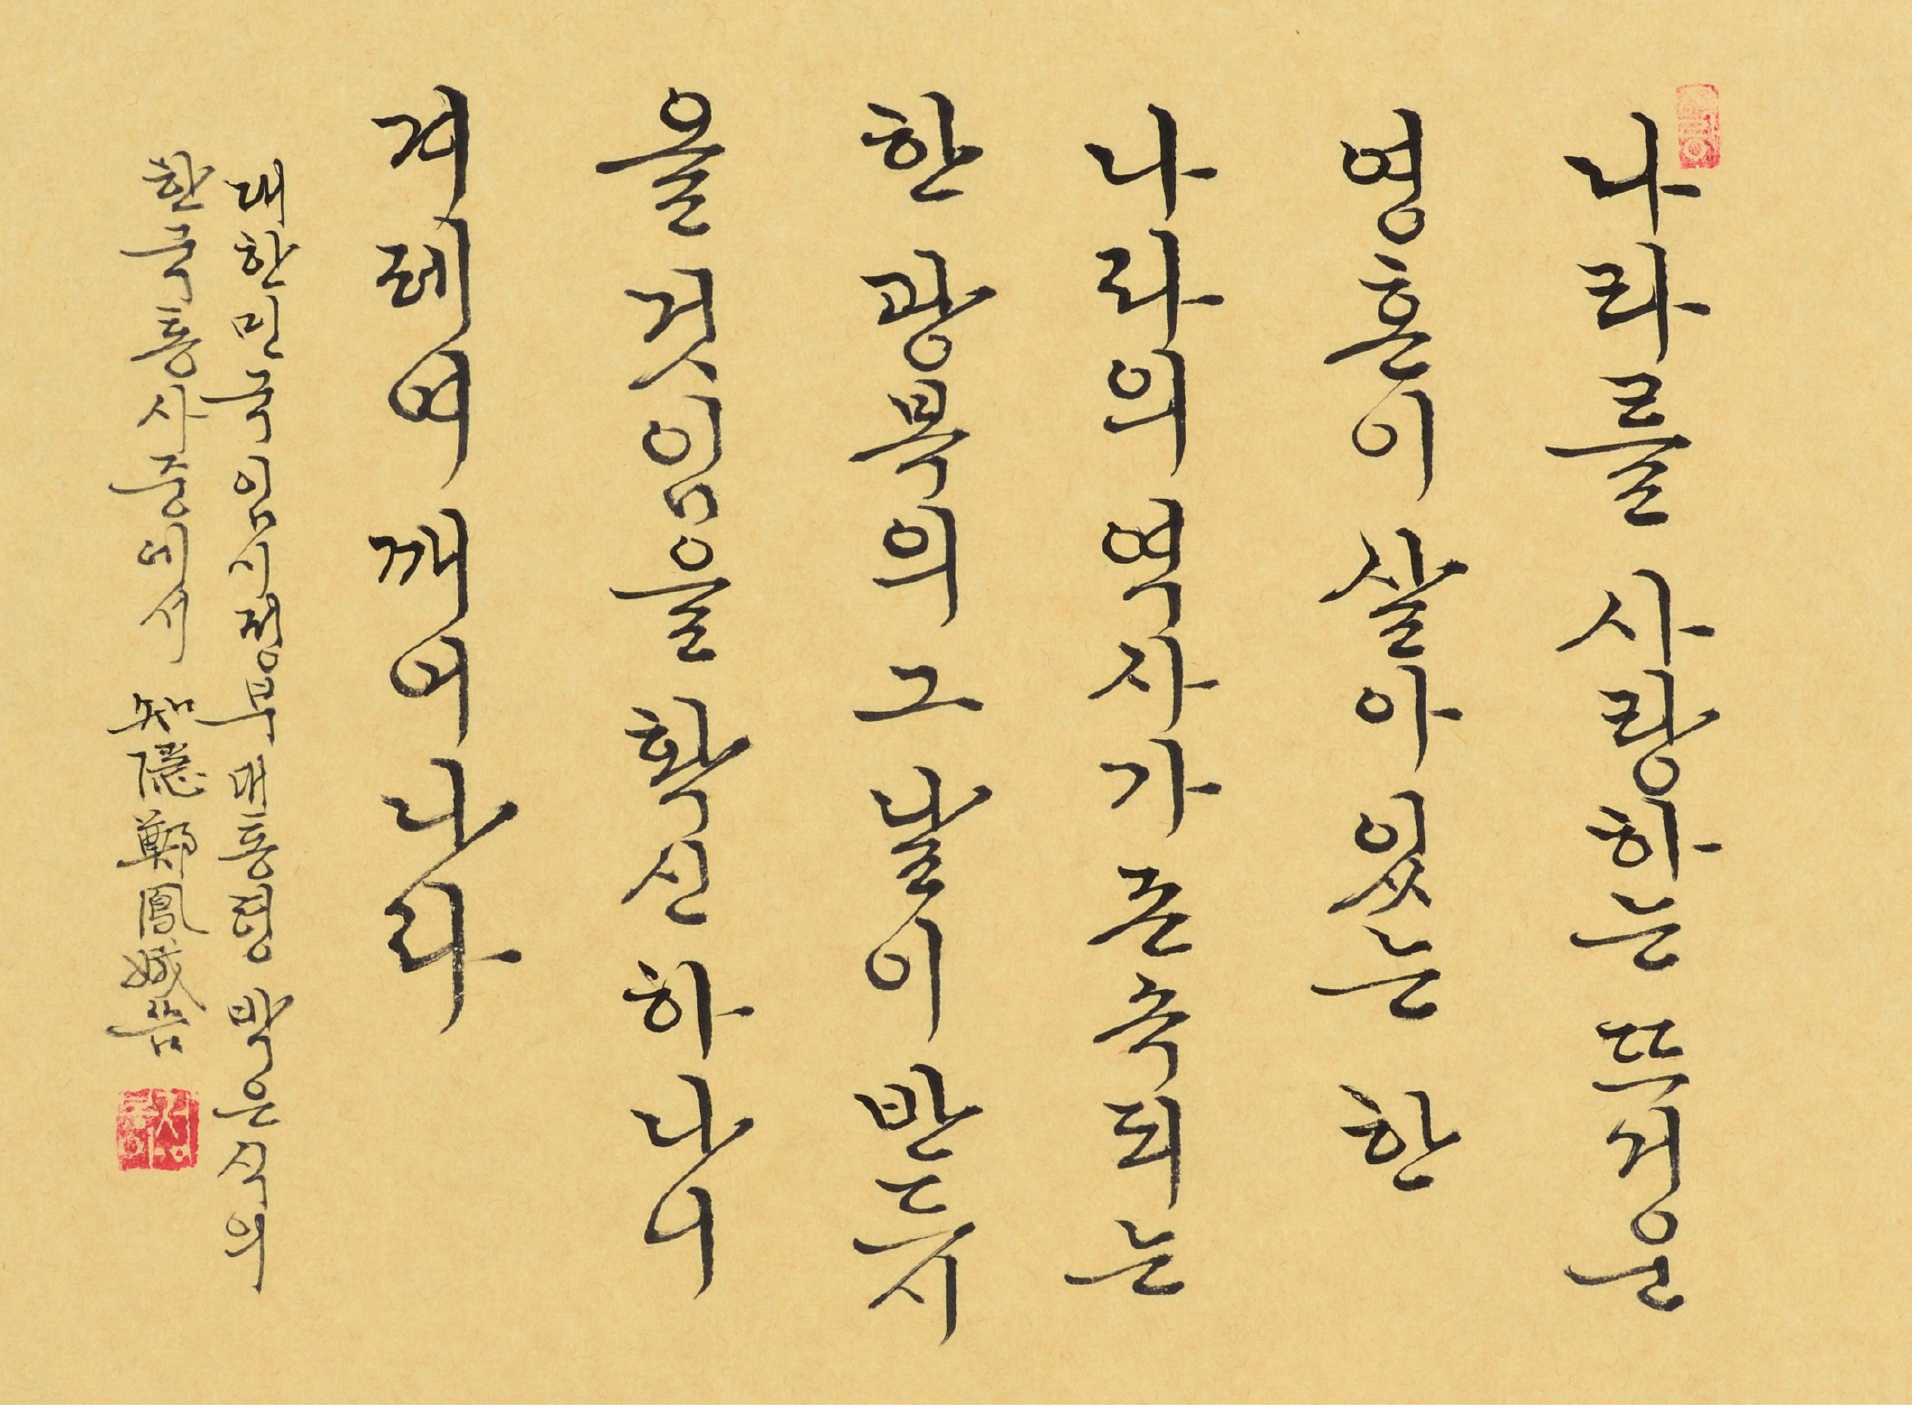 나라를 사랑하는 뜨거운
영혼이 살아 있는 한
나라의 역사가 존속되는
한 광복의 그 날이 반드시
올 것임을 확신하나니
겨레여 깨어나라
대한민국 임시정부 대통령 박은식의
한국통사 중에서 知隱 鄭鳳娥 씀
정봉아